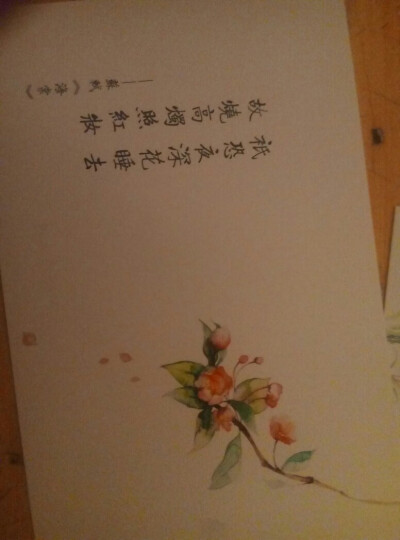 祇恐夜深花睡去
故燒高燭照紅妝
——蘇軾《海棠》